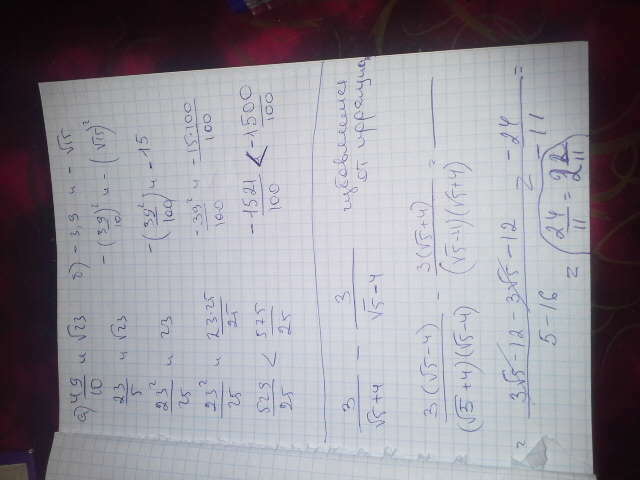 а) 4 9/10 и √23
23/5 и √23
23²/25 и 23
23²/25 и 23·25/25
529/25 < 575/25
б) -3,9 и -√15
-(39/10)² и -(√15)²
-(39²/100) и -15
-39²/100 и -15·100/100
-1521/100 < -1500/100
от иррацио
3/(√5+4) - 3/(√5-4)
3(√5-4)/((√5+4)(√5-4)) - 3(√5+4)/((√5-4)(√5+4)) =
= (3√5-12-3√5-12)/(5-16) = -24/-11 =
= 24/11 = 2 2/11